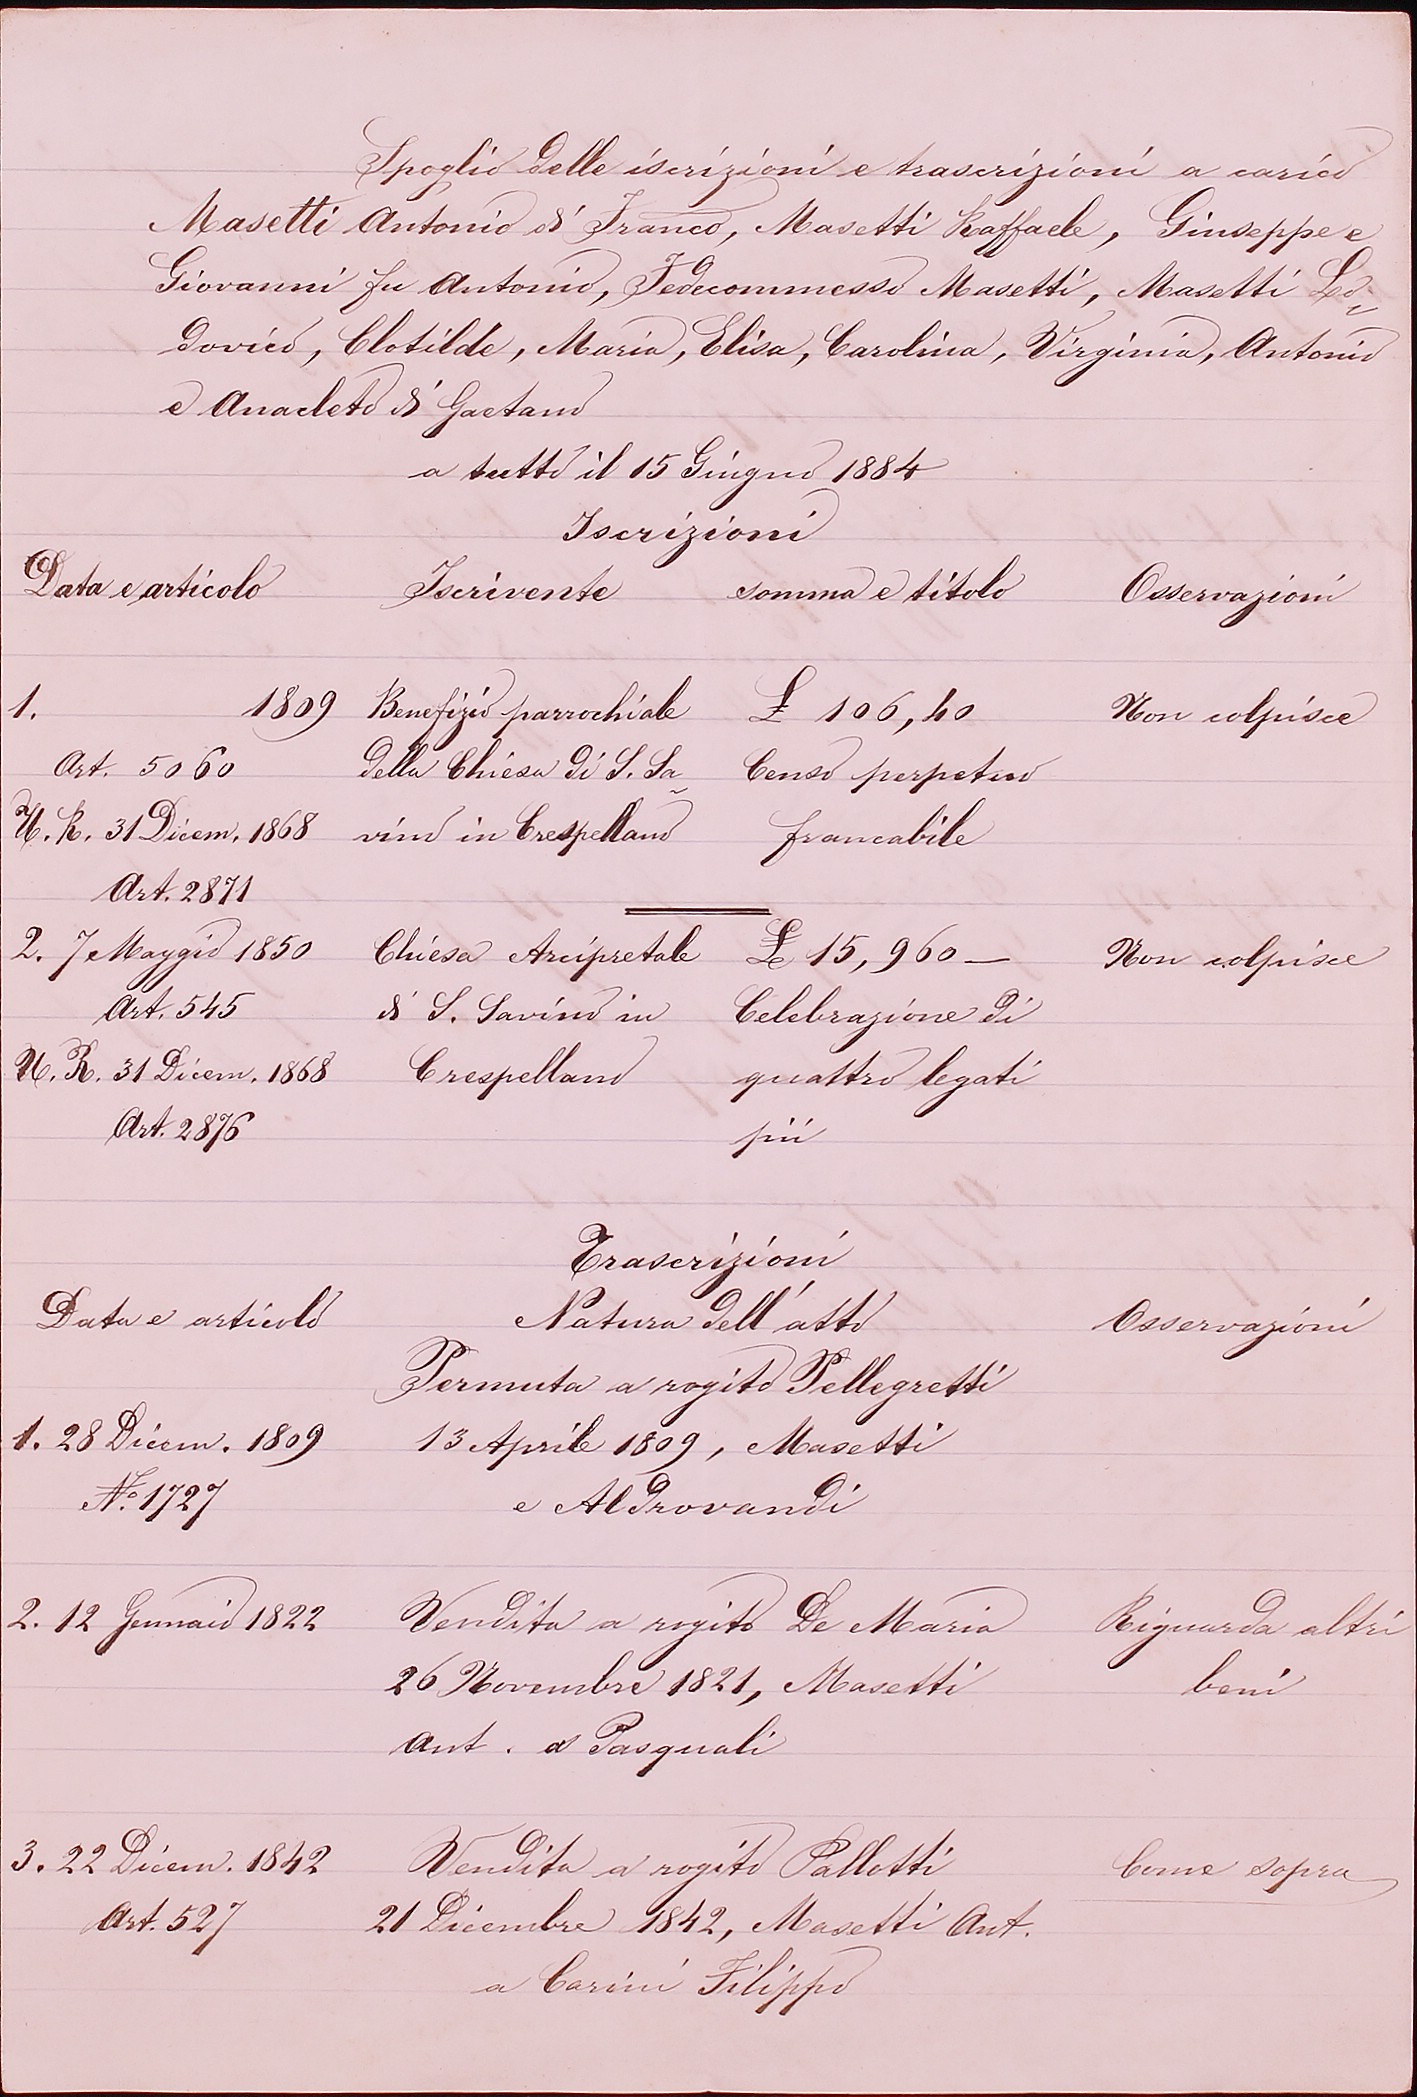 Spoglio delle iscrizioni e trascrizioni a carico
Masetti Antonio di Franco, Masetti Raffaele, Giuseppe e
Giovanni fu Antonio, Fedecommesso Masetti, Masetti Lo-
dovico, Clotilde, Maria, Elisa, Carolina, Virginia, Antonio
e Anacleto di Gaetano
a tutto il 15 Giugno 1884
Iscrizioni
Data e articolo Iscrivente somma e titolo Osservazioni
1. 1809 Benefizio parrochiale £ 106,40 Non colpisce
Art. 5060 della Chiesa di S. Sa- Censo perpetuo
N. R. 31 Dicem. 1868 vino in Crespellano francabile
Art. 2871
2. 7 Maggio 1850 Chiesa Arcipretale £ 15,960 — Non colpisce
Art. 545 di S. Savino in Celebrazione di
N. R. 31 Dicem. 1868 Crespellano quattro legati
Art. 2876 pii
Trascrizioni
Data e articolo Natura dell'atto Osservazioni
Permuta a rogito Pellegretti
1. 28 Dicem. 1809 13 Aprile 1809, Masetti
N.º 1727 e Aldrovandi
2. 12 Gennaio 1822 Vendita a rogito De Maria Riguarda altri
26 Novembre 1821, Masetti beni
Ant. a Pasquali
3. 22 Dicem. 1842 Vendita a rogito Pallotti Come sopra
Art. 527 21 Dicembre 1842, Masetti Ant.
a Carini Filippo